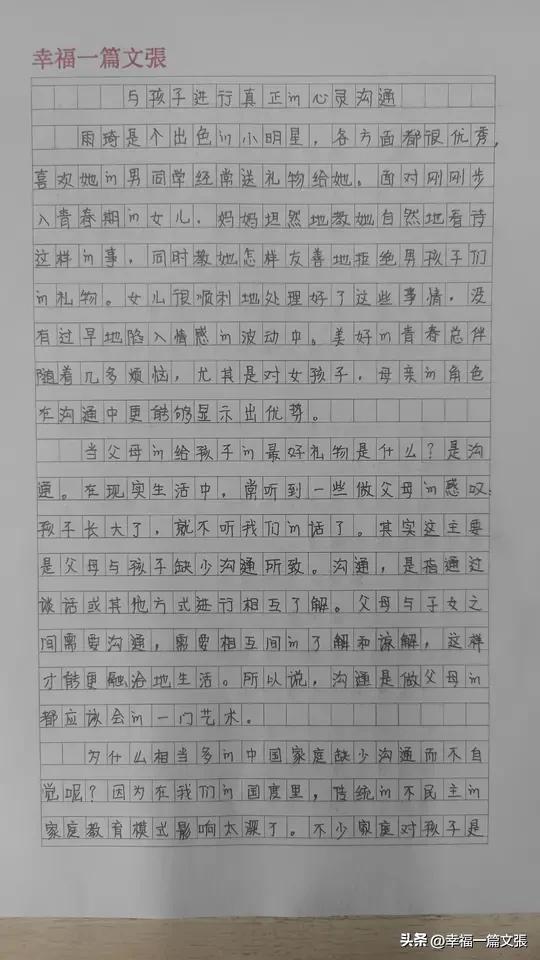 幸福一篇文張
与孩子进行真正的心灵沟通
雨琦是个出色的小明星，各方面都很优秀，
喜欢她的男同学经常送礼物给她。面对刚刚步
入青春期的女儿，妈妈坦然地教她自然地看待
这样的事，同时教她怎样友善地拒绝男孩子们
的礼物。女儿很顺利地处理好了这些事情，没
有过早地陷入情感的波动中。美好的青春总伴
随着几多烦恼，尤其是对女孩子，母亲的角色
在沟通中更能够显示出优势。
当父母的给孩子的最好礼物是什么？是沟
通。在现实生活中，常听到一些做父母的感叹：
孩子长大了，就不听我们的话了。其实这主要
是父母与孩子缺少沟通所致。沟通，是指通过
谈话或其他方式进行相互了解。父母与子女之
间需要沟通，需要相互间的了解和谅解，这样
才能更融洽地生活。所以说，沟通是做父母的
都应该会的一门艺术。
为什么相当多的中国家庭缺少沟通而不自
觉呢？因为在我们的国度里，传统的不民主的
家庭教育模式影响太深了。不少家庭对孩子是
头条@幸福一篇文張